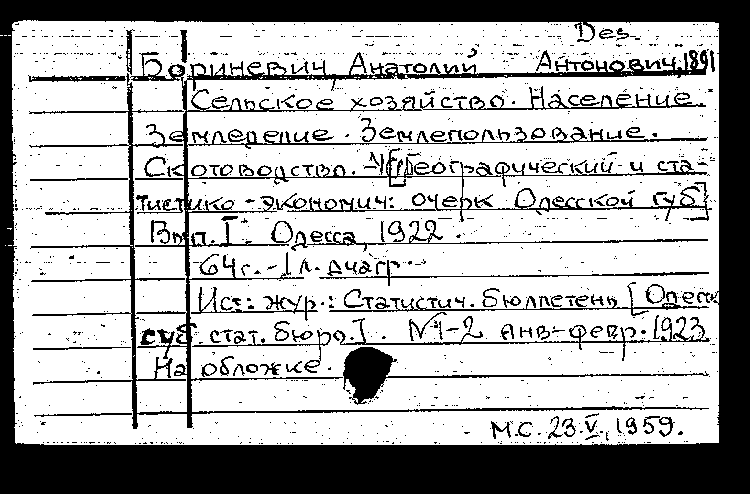 Des.
Бориневич, Анатолий Антонович, 1891
Сельское хозяйство. Население.
Земледелие. Землепользование.
Скотоводство. Географический и ста-
тистико-экономич: очерк Одесской губ]
Вып. I. Одесса, 1922.
64с. - 1 л. диагр.
Ист: жур.: Статистич. Бюллетень [Одесск
губ. стат. бюро.]. №1-2 янв-февр. 1923.
На обложке.
М.С. 23.V.,1959.